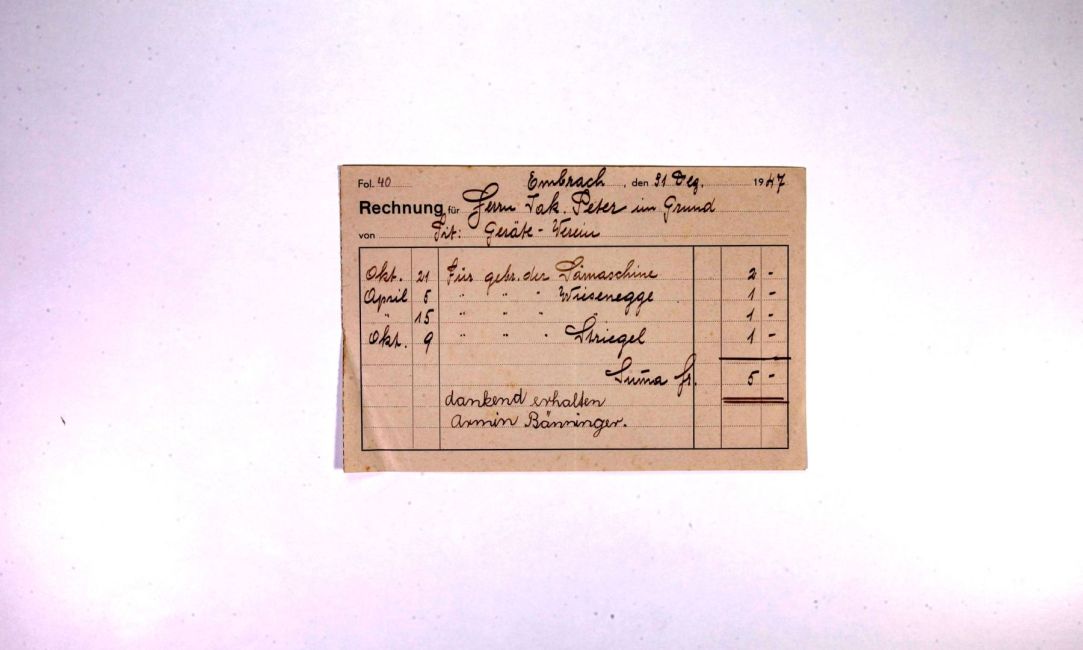 Fol. 40 Embrach, den 31 Dez. 1947
Rechnung für Herrn Jak. Peter im Grund
von Tit: Geräte-Verein
Okt. 21 Für gebr. der Sämaschine 2 -
April 5 " " " Wiesenegge 1 -
" 15 " " " " 1 -
Okt. 9 " " " Striegel 1 -
Suma fr. 5 -
dankend erhalten
Armin Bänninger.